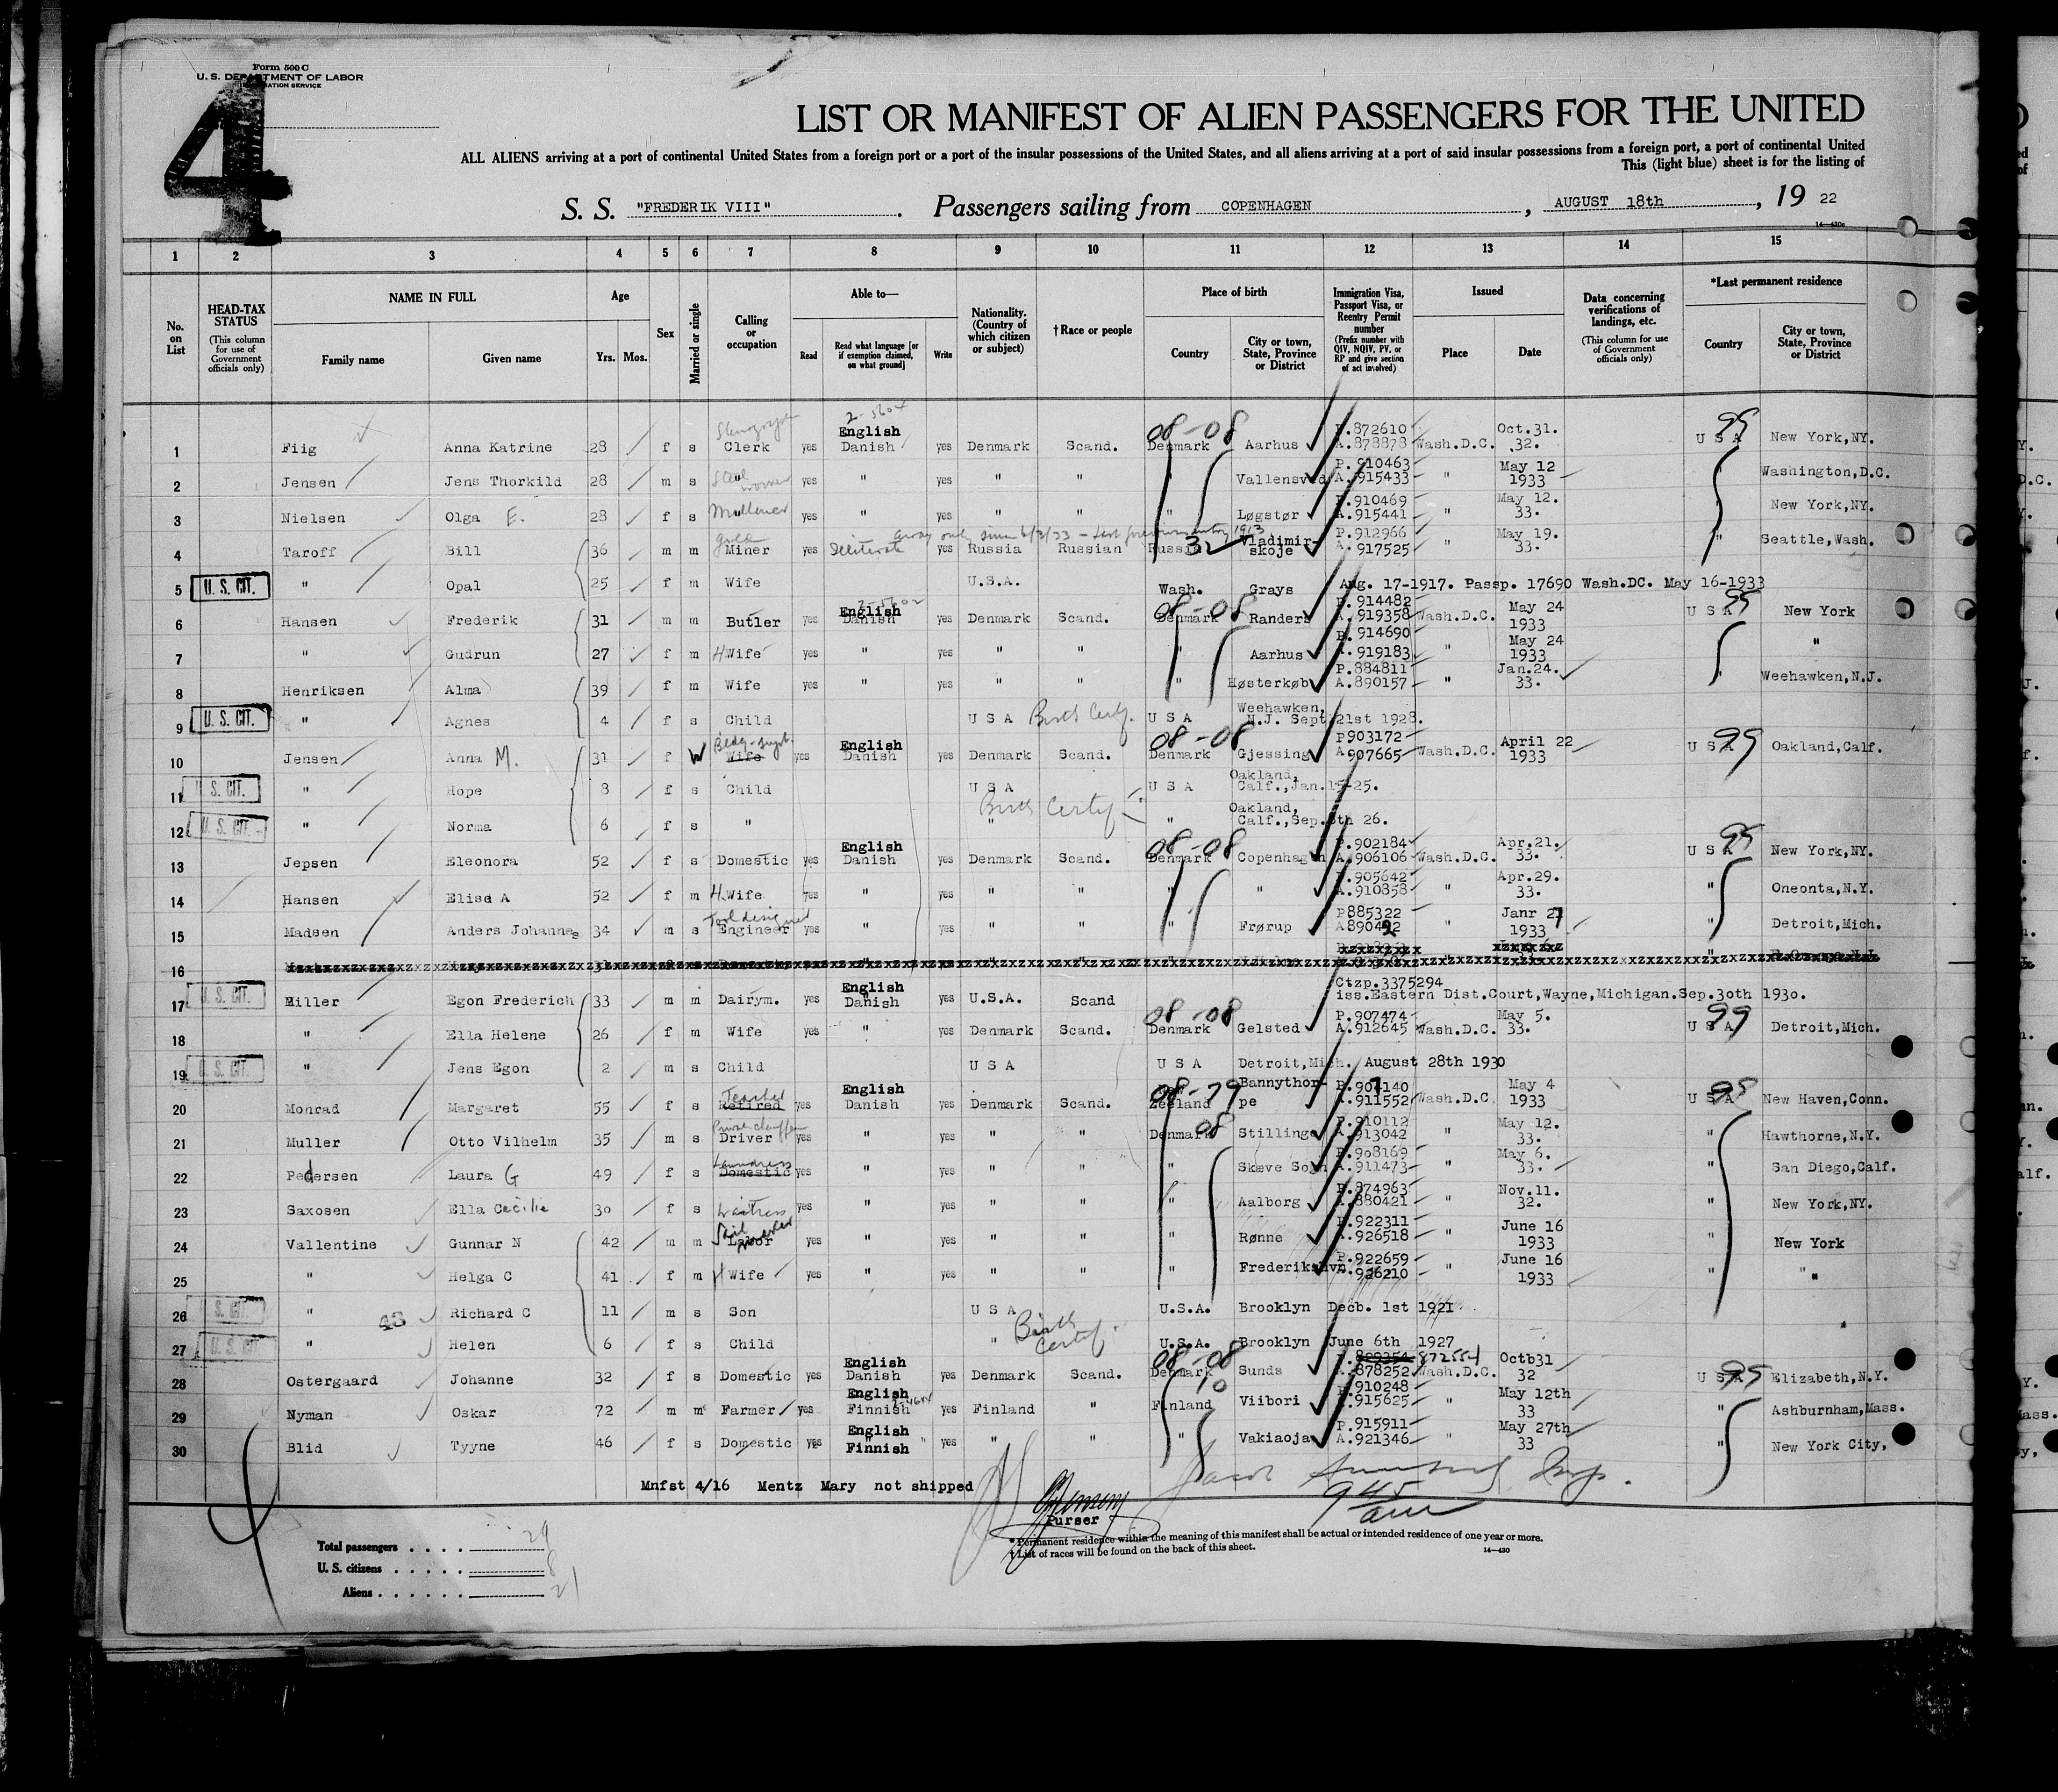 Form 500 C
U. S. DEPARTMENT OF LABOR
IMMIGRATION SERVICE
4
LIST OR MANIFEST OF ALIEN PASSENGERS FOR THE UNITED
ALL ALIENS arriving at a port of continental United States from a foreign port or a port of the insular possessions of the United States, and all aliens arriving at a port of said insular possessions from a foreign port, a port of continental United
This (light blue) sheet is for the listing of
S. S. "FREDERIK VIII". Passengers sailing from COPENHAGEN, AUGUST 18th, 19 22
14—430c
1 2 3 4 5 6 7 8 9 10 11 12 13 14 15
No. on List
HEAD-TAX STATUS (This column for use of Government officials only)
NAME IN FULL
Family name
Given name
Age
Yrs. Mos.
Sex
Married or single
Calling or occupation
Able to—
Read
Read what language [or if exemption claimed, on what ground]
Write
Nationality. (Country of which citizen or subject)
†Race or people
Place of birth
Country
City or town, State, Province or District
Immigration Visa, Passport Visa, or Reentry Permit number (Prefix number with QIV, NQIV, PV, or RP and give section of act involved)
Issued
Place
Date
Data concerning verifications of landings, etc. (This column for use of Government officials only)
*Last permanent residence
Country
City or town, State, Province or District
1 Fiig Anna Katrine 28 f s Clerk yes English Danish yes Denmark Scand. 08-08 Denmark Aarhus P.872610 A.878878 Wash.D.C. Oct.31. 32. U S A 99 New York,NY.
2 Jensen Jens Thorkild 28 m s yes " yes " " " Vallensved P.910463 A.915433 " May 12 1933 " Washington,D.C.
3 Nielsen Olga E. 28 f s yes " yes " " " Løgstør P.910469 A.915441 " May 12. 33. " New York,NY.
4 Taroff Bill 36 m m gold Miner illiterate yes Russia Russian Russia 32 Vladimir-skoje P.912966 A.917525 " May 19. 33. " Seattle,Wash.
5 U. S. CIT. " Opal 25 f m Wife U.S.A. Wash. Grays Aug. 17-1917. Passp. 17690 Wash.DC. May 16-1933
6 Hansen Frederik 31 m m Butler yes English Danish yes Denmark Scand. 08-08 Denmark Randers P.914482 A.919358 Wash.D.C. May 24 1933 U S A 99 New York
7 " Gudrun 27 f m H Wife yes " yes " " " Aarhus P.914690 A.919183 " May 24 1933 "
8 Henriksen Alma 39 f m Wife yes " yes " " " Høsterkøb P.884811 A.890157 " Jan.24. 33. " Weehawken,N.J.
9 U. S. CIT. " Agnes 4 f s Child U S A Birth Certf. U S A Weehawken, N.J. Sept 21st 1928.
10 Jensen Anna M. 31 f W Wife yes English Danish yes Denmark Scand. 08-08 Denmark Gjessing P903172 A907665 Wash.D.C. April 22 1933 U S A 99 Oakland,Calf.
11 U. S. CIT. " Hope 8 f s Child U S A U S A Oakland, Calf.,Jan.15-25.
12 U. S. CIT. " Norma 6 f s " " Birth Certif " Oakland, Calf.,Sep.8th 26.
13 Jepsen Eleonora 52 f s Domestic yes English Danish yes Denmark Scand. 08-08 Denmark Copenhagen P.902184 A.906106 Wash.D.C. Apr.21. 33. U S A 99 New York,NY.
14 Hansen Elise A 52 f m H.Wife yes " yes " " " " P.905642 A.910858 " Apr.29. 33. " Oneonta,N.Y.
15 Madsen Anders Johannes 34 m s Tool designer Engineer yes " yes " " " Frørup P885322 A890492 " Janr 27 1933 " Detroit,Mich.
16
17 U. S. CIT. Hiller Egon Frederich 33 m m Dairym. yes English Danish yes U.S.A. Scand Ctzp.3375294 iss.Eastern Dist.Court,Wayne,Michigan.Sep.30th 1930.
18 " Ella Helene 26 f m Wife yes " yes Denmark Scand. 08-08 Denmark Gelsted P.907474 A.912645 Wash.D.C. May 5. 33. U S A 99 Detroit,Mich.
19 U. S. CIT. " Jens Egon 2 m s Child U S A U S A Detroit,Mich. August 28th 1930
20 Monrad Margaret 55 f s Teacher Retired yes English Danish yes Denmark Scand. 08-79 Zeeland Bannythor-pe P.907140 A.911552 Wash.D.C May 4 1933 U S A New Haven,Conn.
21 Muller Otto Vilhelm 35 m s Private chauffeur Driver yes " yes " " Denmark 08 Stillinge P.910112 A.913042 " May 12. 33. " Hawthorne,N.Y.
22 Pedersen Laura G 49 f s Laundress Domestic yes " yes " " " Skeve Sogn P.908169 A.911473 " May 6. 33. " San Diego,Calf.
23 Saxosen Ella Cecilie 30 f s Waitress yes " yes " " " Aalborg P.874963 A.880421 " Nov.11. 32. " New York,NY.
24 Vallentine Gunnar N 42 m m Labor yes " yes " " " Rønne P.922311 A.926518 " June 16 1933 " New York
25 " Helga C 41 f m H Wife yes " yes " " " Frederikshvn P.922659 A.926210 " June 16 1933 " "
26 U. S. CIT. " Richard C 11 m s Son U S A U.S.A. Brooklyn Decb. 1st 1921
27 U. S. CIT. " Helen 6 f s Child " Birth Certif. U.S.A. Brooklyn June 6th 1927
28 Ostergaard Johanne 32 f s Domestic yes English Danish yes Denmark Scand. 08-08 Denmark Sunds 872554 A.878252 Wash.D.C. Octb31 32 U S A 99 Elizabeth,N.Y.
29 Nyman Oskar 72 m m Farmer yes English Finnish yes Finland " 10 Finland Viibori P.910248 A.915625 " May 12th 33 " Ashburnham,Mass.
30 Blid Tyyne 46 f s Domestic yes English Finnish " yes " " " Vakiaoja P.915911 A.921346 " May 27th 33 " New York City,
Mnfst 4/16 Mentz Mary not shipped
Purser
945 am
Total passengers . . . . 29
U. S. citizens . . . . . 8
Aliens . . . . . . 21
* Permanent residence within the meaning of this manifest shall be actual or intended residence of one year or more.
† List of races will be found on the back of this sheet.
14—430